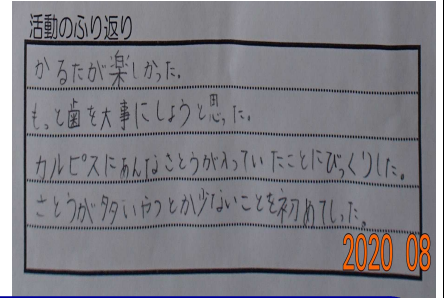 活動のふり返り
かるたが楽しかった。
もっと歯を大事にしようと思った。
カルピスにあんなさとうが入っていたことにびっくりした。
さとうが多いやつとか少ないことを初めてしった。
2020 08